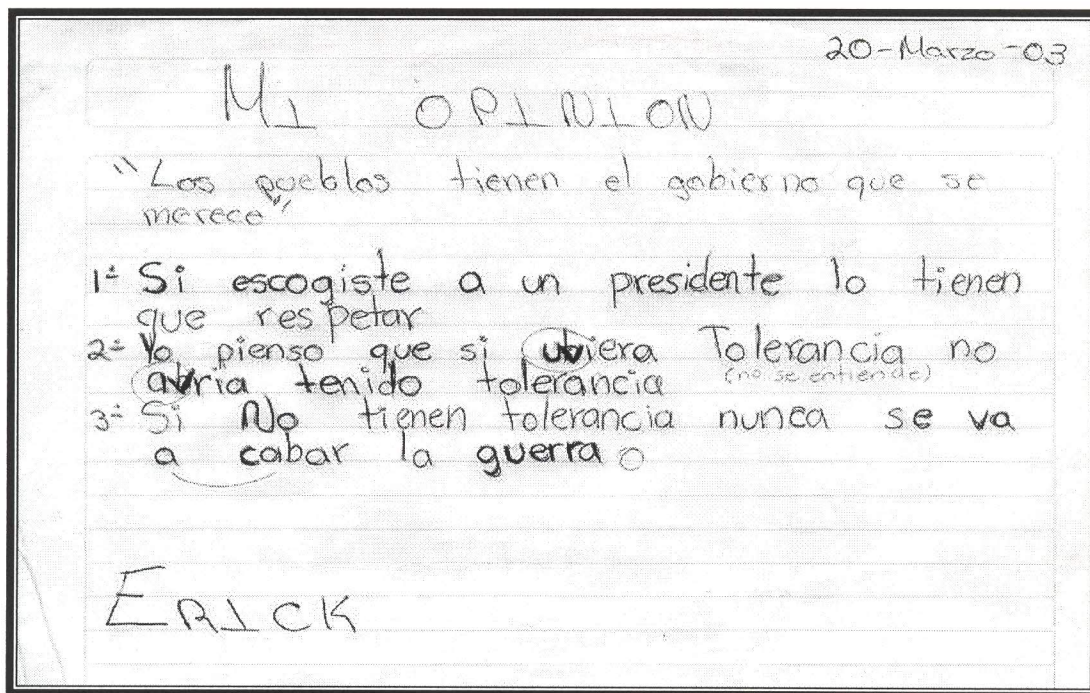 20-Marzo-03
MI OPINION
"Los pueblos tienen el gobierno que se
merece"
1- Si escogiste a un presidente lo tienen
que respetar
2- Yo pienso que si ubiera Tolerancia no
avria tenido tolerancia (no se entiende)
3- Si No tienen tolerancia nunca se va
a cabar la guerra
ERICK